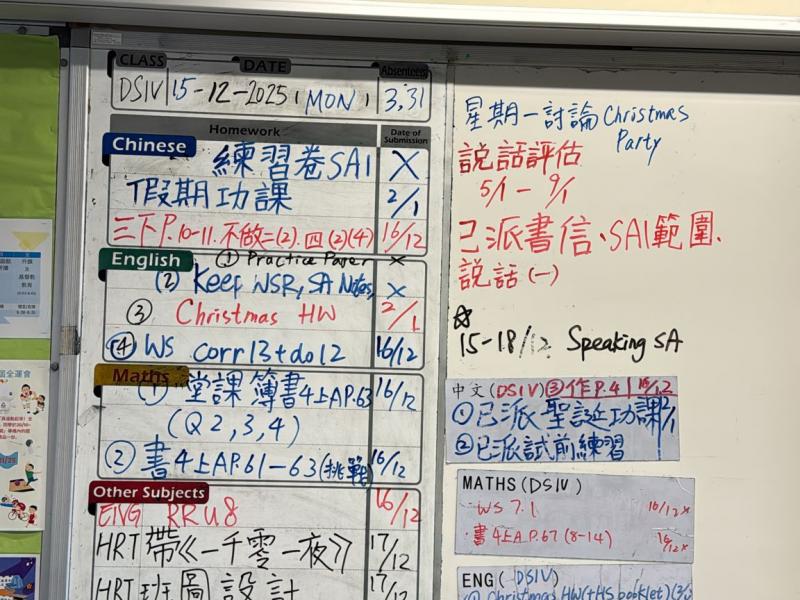 CLASS DATE Absentees
DSIV 15-12-2025, MON, 3,31
Homework Date of Submission
Chinese
練習卷SA1 X
假期功課 2/1
三下P.10-11.不做=(2).四(2)(4) 16/12
English
① Practice Paper X
② Keep WSR, SA Notes, X
③ Christmas HW 2/1
④ WS corr 13+do12 16/12
Maths
① 堂課簿書4上AP.63 16/12
(Q2,3,4)
② 書4上AP.61-63(挑戰) 16/12
Other Subjects
ENG RRU8 16/12
HRT帶《一千零一夜》 17/12
HRT班圖設計 17/12
星期一討論Christmas
Party
說話評估
5/1-9/1
已派書信、SA1範圍、
說話(一)
☆
15-18/12 Speaking SA
中文(DSIV) ③作P.41 16/12
①已派聖誕功課 2/1
②已派試前練習
MATHS(DSIV)
WS 7.1 16/12x
書4上A.P.67(8-14) 16/12x
ENG(DSIV)
① Christmas HW(+HS booklet)